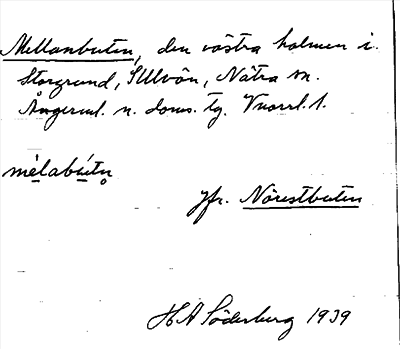 Mellanbuten, den västra holmen i
Storgrund, Ullvön, Nätra sn.
Ångerml. n. doms. tg. Vnorrl. l.
mèlabútn̥
Jfr. Nörestbuten
H A Söderberg 1939